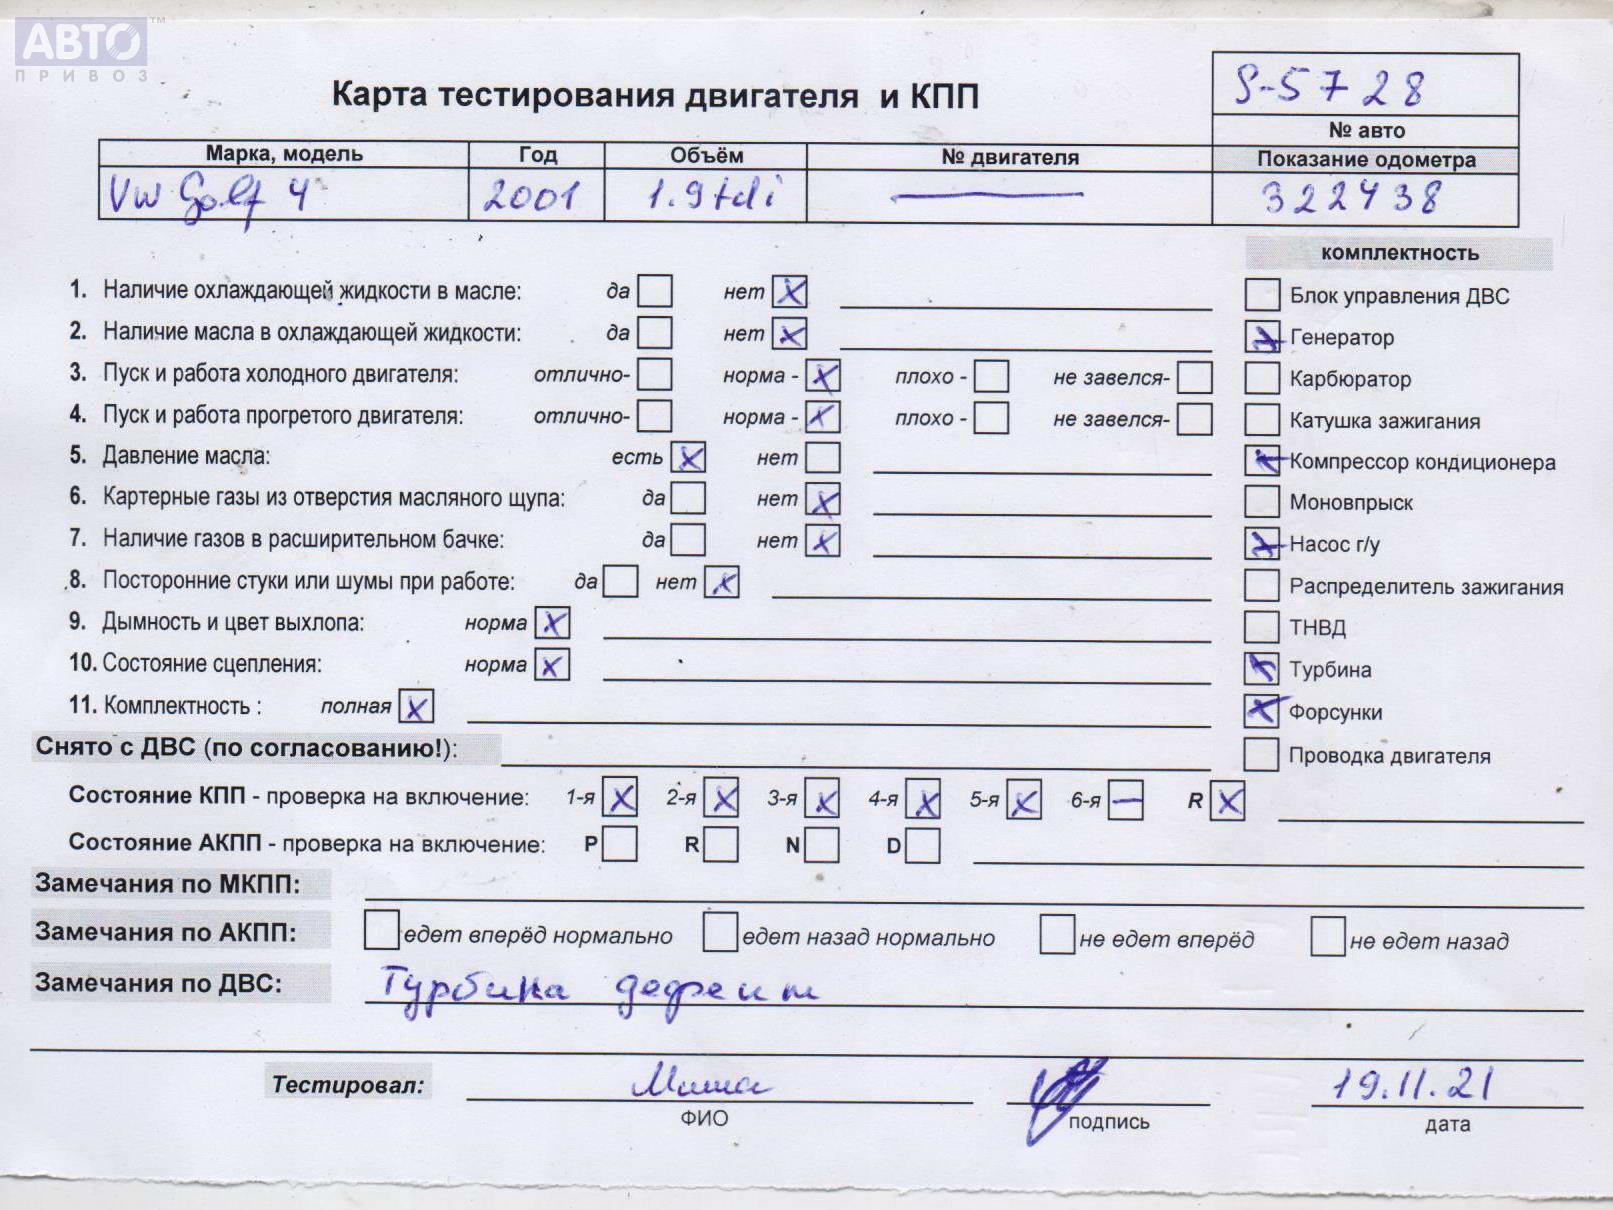 АВТО™
ПРИВОЗ
Карта тестирования двигателя и КПП
S-5728
№ авто
Марка, модель Год Объём № двигателя Показание одометра
VW Golf 4 2001 1.9tdi — 322438
комплектность
1. Наличие охлаждающей жидкости в масле: да нет X
Блок управления ДВС
2. Наличие масла в охлаждающей жидкости: да нет X
X Генератор
3. Пуск и работа холодного двигателя: отлично- норма - X плохо - не завелся-
Карбюратор
4. Пуск и работа прогретого двигателя: отлично- норма - X плохо - не завелся-
Катушка зажигания
5. Давление масла: есть X нет
X Компрессор кондиционера
6. Картерные газы из отверстия масляного щупа: да нет X
Моновпрыск
7. Наличие газов в расширительном бачке: да нет X
X Насос г/у
8. Посторонние стуки или шумы при работе: да нет X
Распределитель зажигания
9. Дымность и цвет выхлопа: норма X
ТНВД
10. Состояние сцепления: норма X
X Турбина
11. Комплектность : полная X
X Форсунки
Снято с ДВС (по согласованию!):
Проводка двигателя
Состояние КПП - проверка на включение: 1-я X 2-я X 3-я X 4-я X 5-я X 6-я — R X
Состояние АКПП - проверка на включение: P R N D
Замечания по МКПП:
Замечания по АКПП: едет вперёд нормально едет назад нормально не едет вперёд не едет назад
Замечания по ДВС: Турбина дефект
Тестировал: Миша 19.11.21
ФИО подпись дата